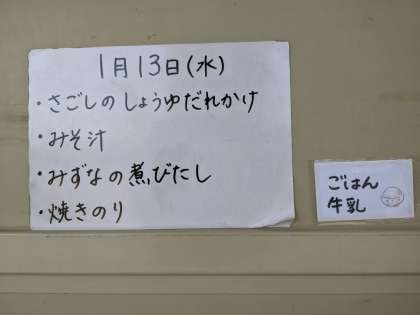 1月13日(水)
・さごしのしょうゆだれかけ
・みそ汁
・みずなの煮びたし
・焼きのり
ごはん
牛乳